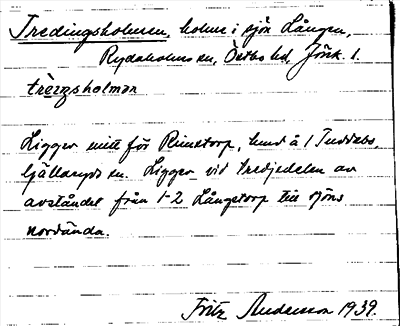 Tredingsholmen, holme i sjön Lången,
Rydaholms sn, Östbo hd, Jönk. l.
trèŋsholmən
Ligger mitt för Rimstorp, hmd å 1
Gällaryds sn. Ligger vid tredjedelen av
avståndet från 1-2 Långstorp till sjöns
nordända.
Fritz Andersson 1939.